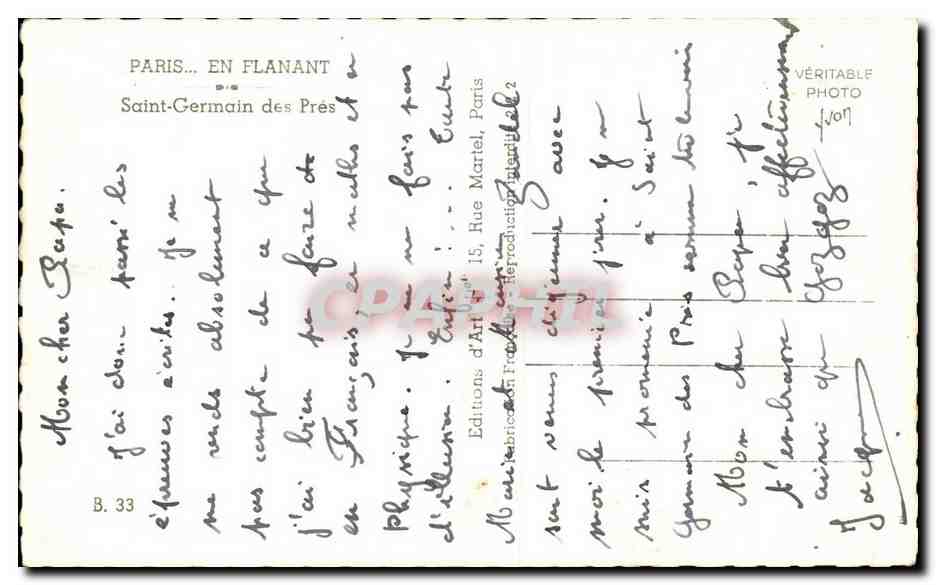 PARIS... EN FLANANT
Saint-Germain des Prés
VÉRITABLE
PHOTO
B. 33
Editions d'Art 15, Rue Martel, Paris
Fabrication Française - Reproduction interdite
CPAPHIL
Mon cher Papa.
J'ai donc passé les
épreuves écrites. Je
me rends absolument
pas compte de ce que
j'ai bien pu faire
en Français, en maths et en
Physique. Je ne me fais pas
d'illusion. Enfin!..
Marie et
sont venus déjeuner avec
moi le premier jour.
suis promené à Saint
Germain des Prés
Mon cher Papa je
t'embrasse bien affectueusement
ainsi que
Jacques